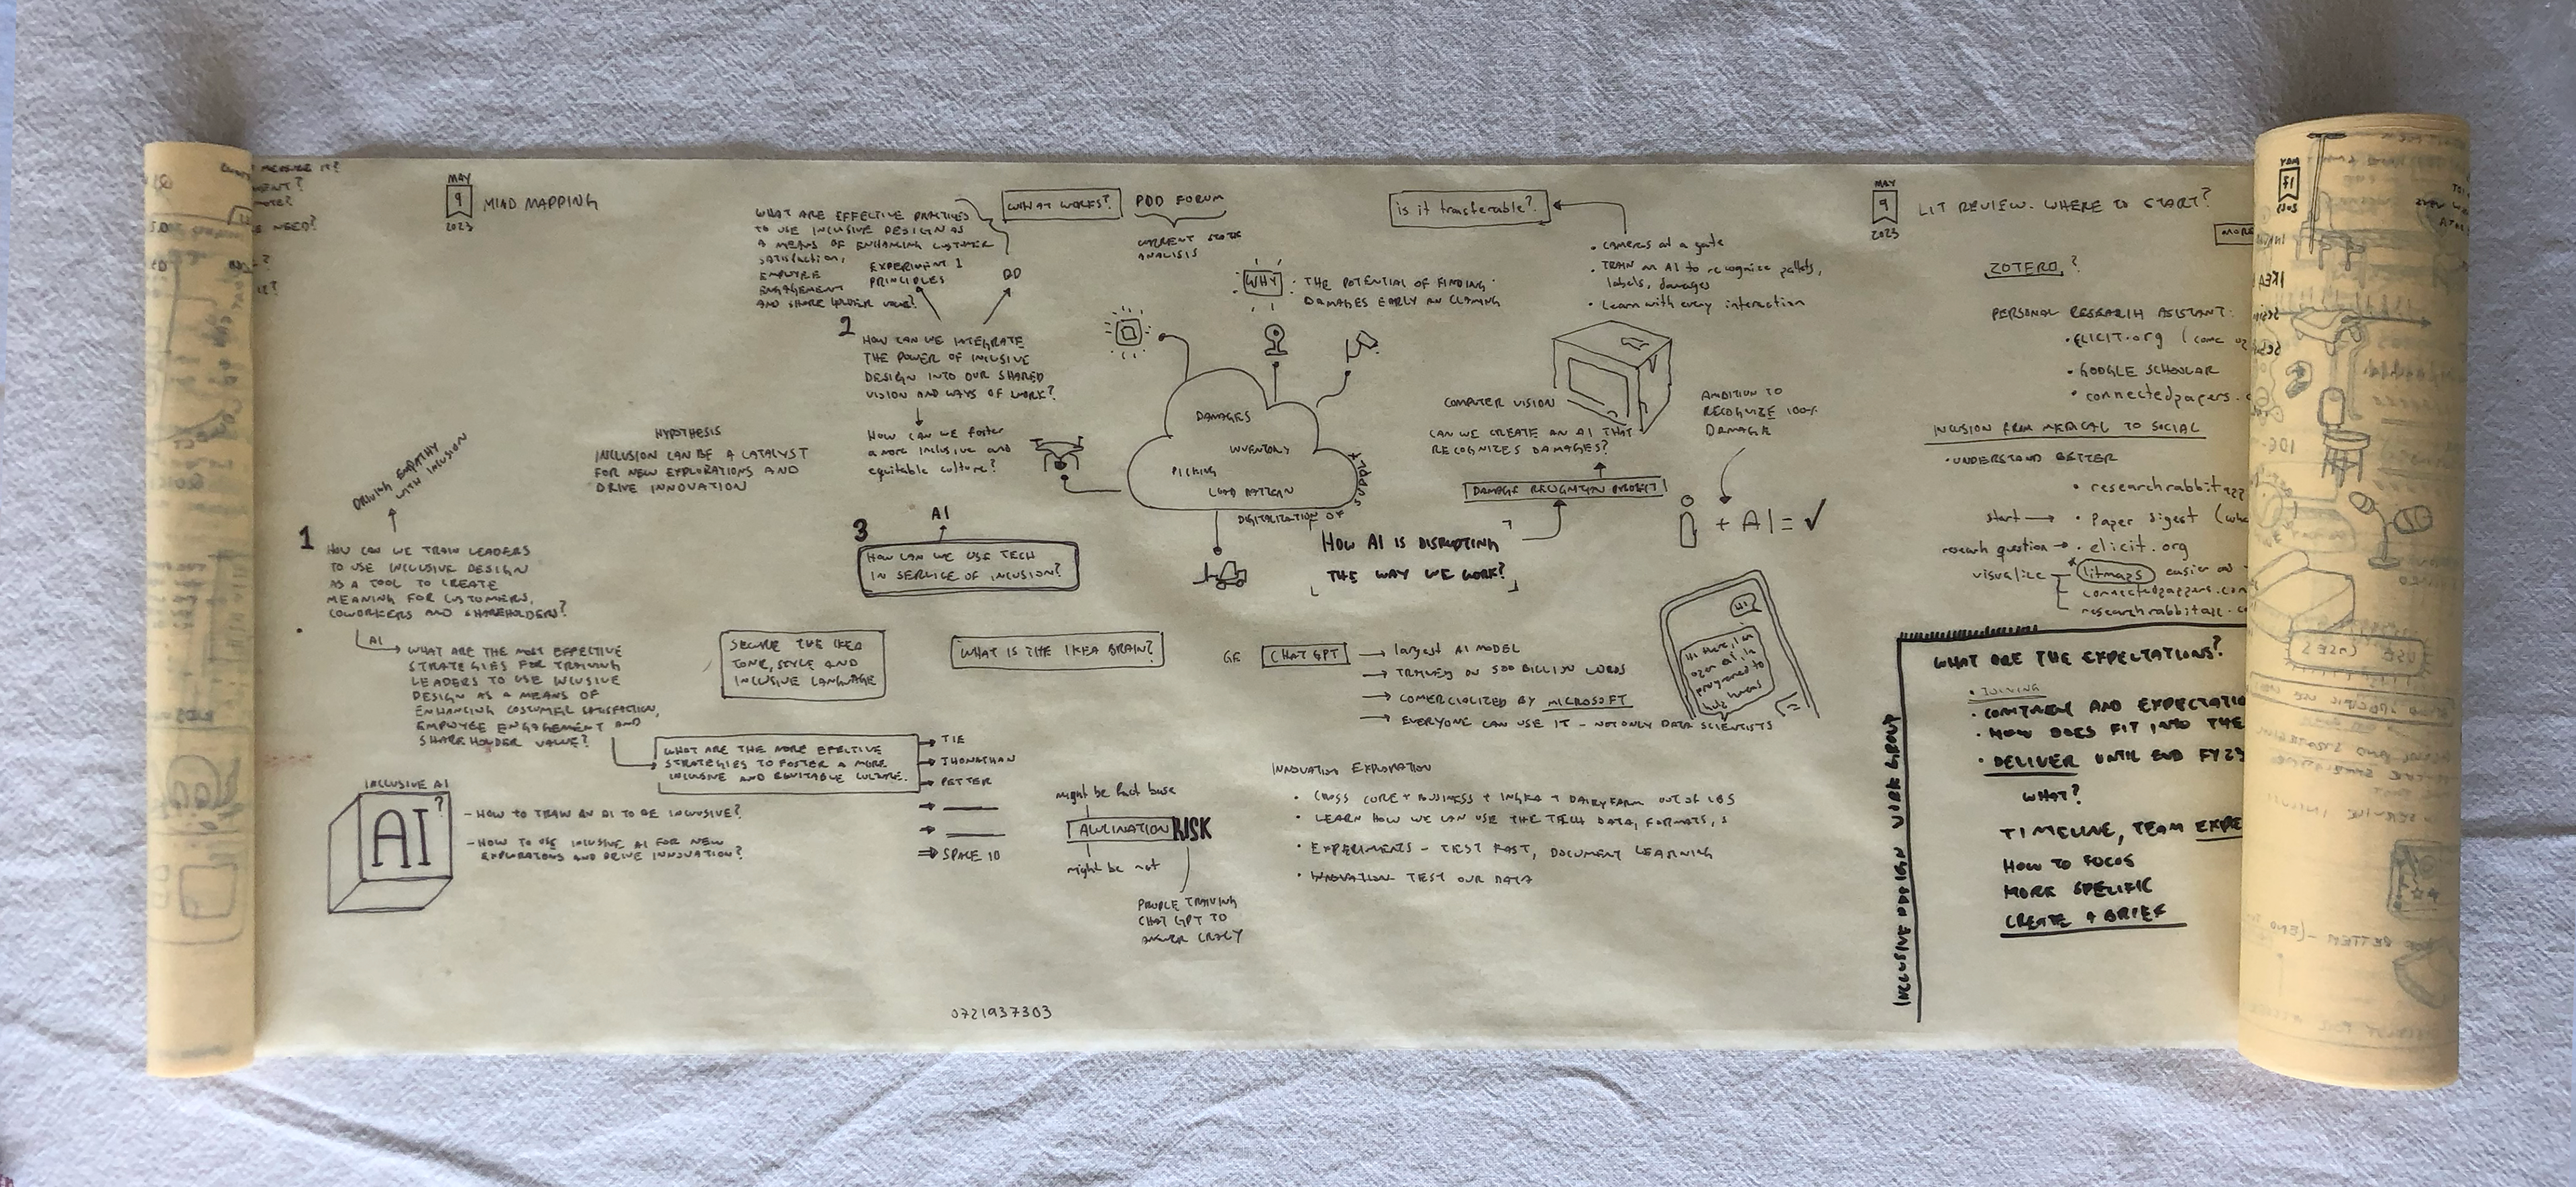 MAY
9
2023
MIND MAPPING
WHAT ARE EFFECTIVE PRACTICES
TO USE INCLUSIVE DESIGN AS
A MEANS OF ENHANCING CUSTOMER
SATISFACTION,
EMPLOYEE
ENGAGEMENT
AND SHARE HOLDER VALUE?
EXPERIMENT 1
PRINCIPLES
DD
WHAT WORKS?
PDD FORUM
CURRENT STATE
ANALYSIS
2
HOW CAN WE INTEGRATE
THE POWER OF INCLUSIVE
DESIGN INTO OUR SHARED
VISION AND WAYS OF WORK?
How can we foster
a more inclusive and
equitable culture?
HYPOTHESIS
INCLUSION CAN BE A CATALYST
FOR NEW EXPLORATIONS AND
DRIVE INNOVATION
DRIVING EMPATHY
WITH INCLUSION
1
HOW CAN WE TRAIN LEADERS
TO USE INCLUSIVE DESIGN
AS A TOOL TO CREATE
MEANING FOR CUSTOMERS,
COWORKERS AND SHAREHOLDERS?
AI
WHAT ARE THE MOST EFFECTIVE
STRATEGIES FOR TRAINING
LEADERS TO USE INCLUSIVE
DESIGN AS A MEANS OF
ENHANCING COSTUMER SATISFACTION,
EMPLOYEE ENGAGEMENT AND
SHAREHOLDER VALUE?
WHAT ARE THE MORE EFECTIVE
STRATEGIES TO FOSTER A MORE
INCLUSIVE AND EQUITABLE CULTURE.
TIE
JHONATHAN
PETTER
SPACE 10
INCLUSIVE AI
AI?
- HOW TO TRAIN AN AI TO BE INCLUSIVE?
- HOW TO USE INCLUSIVE AI FOR NEW
EXPLORATIONS AND DRIVE INNOVATION?
AI
3
HOW CAN WE USE TECH
IN SERVICE OF INCLUSION?
SECURE THE IKEA
TONE, STYLE AND
INCLUSIVE LANGUAGE
WHAT IS THE IKEA BRAIN?
WHY
THE POTENTIAL OF FINDING
DAMAGES EARLY ON CLAIMING
DAMAGES
INVENTORY
PICKING
LOAD PATTERN
DIGITALIZATION OF
SUPPLY
is it trasferable?
• CAMERAS at a gate
• TRAIN an AI to recognize pallets,
labels, damages
• Learn with every interaction
COMPUTER VISION
CAN WE CREATE AN AI THAT
RECOGNIZES DAMAGES?
DAMAGE RECOGNITION PROJECT
AMBITION TO
RECOGNIZE 100%
DAMAGE
+ AI = ✓
HOW AI IS DISRUPTING
THE WAY WE WORK?
CHAT GPT
→ largest AI MODEL
→ TRAINED ON 500 BILLION WORDS
→ COMERCIALIZED BY MICROSOFT
→ EVERYONE CAN USE IT - NOT ONLY DATA SCIENTISTS
Hi
might be fact base
AWLINATION RISK
might be not
PEOPLE TRAINING
CHAT GPT TO
ANSWER CRAZY
INNOVATION EXPLORATION
• CROSS CORE + BUSINESS + INGKA + DAIRY FARM OUT OF
• LEARN HOW WE CAN USE THE TECH DATA, FORMATS,
• EXPERIMENTS - TEST FAST, DOCUMENT LEARNING
• INNOVATION TEST OUR DATA
0721937303
MAY
9
2023
LIT REVIEW. WHERE TO START?
MORE
ZOTERO?
PERSONAL RESEARCH ASISTANT:
• ELICIT.org
• GOOGLE SCHOLAR
• connectedpapers.
INCLUSION FROM MEDICAL TO SOCIAL
• UNDERSTAND BETTER
• researchrabbit
start → • Paper digest
research question → • elicit.org
visualize
litmaps easier
connectedpappers.com
researchrabbit
WHAT ARE THE EXPECTATIONS?
• JOINING
• COMITMENT AND EXPECTATIO
• HOW DOES FIT INTO THE
• DELIVER UNTIL END FY23
WHAT?
TIMELINE, TEAM EXPE
HOW TO FOCUS
MORE SPECIFIC
CREATE A BRIEF
INCLUSIVE DESIGN WORK GROUP